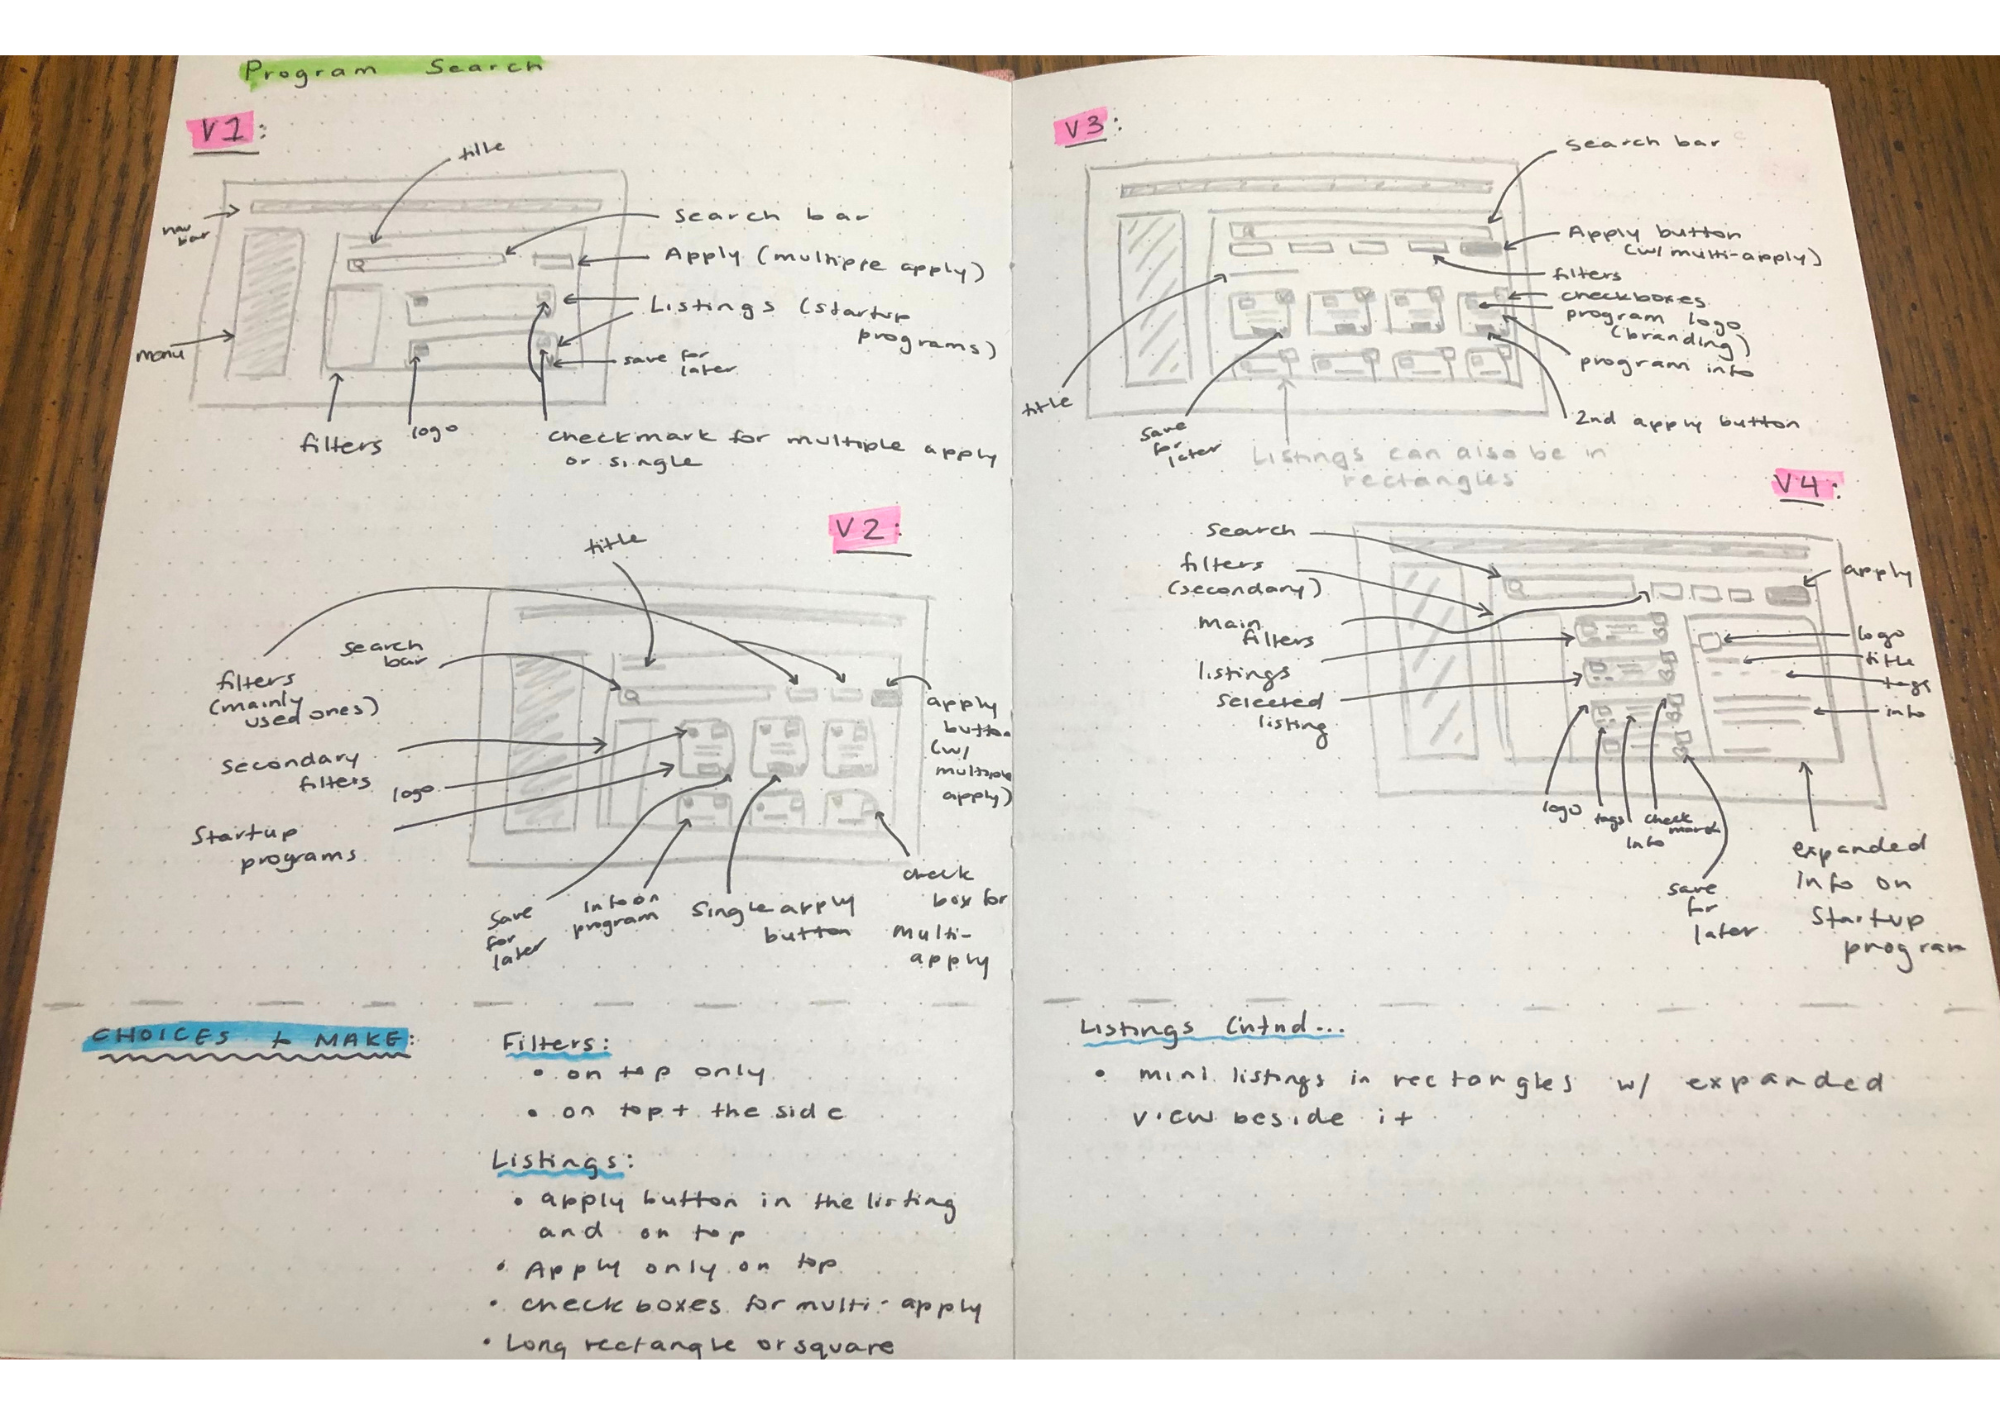 Program Search
V1:
title
nav
bar
search bar
Apply (multiple apply)
Listings (startup
programs)
save for
later
menu
filters
logo
checkmark for multiple apply
or single
V2:
title
search
bar
filters
(mainly
used ones)
secondary
filters
logo
Startup
programs
apply
button
(w/
multiple
apply)
save
for
later
info on
program
Single apply
button
check
box for
multi-
apply
CHOICES to MAKE:
Filters:
• on top only
• on top + the side
Listings:
• apply button in the listing
and on top
• Apply only on top
• checkboxes for multi-apply
• Long rectangle or square
V3:
search bar
Apply button
(w/ multi-apply)
filters
checkboxes
program logo
(branding)
program info
2nd apply button
title
save
for
later
Listings can also be in
rectangles
V4:
search
filters
(secondary)
main
filters
listings
selected
listing
apply
logo
title
tags
info
logo
tags
info
check
mark
save
for
later
expanded
info on
Startup
program
Listings Cntnd...
• mini listings in rectangles w/ expanded
view beside it